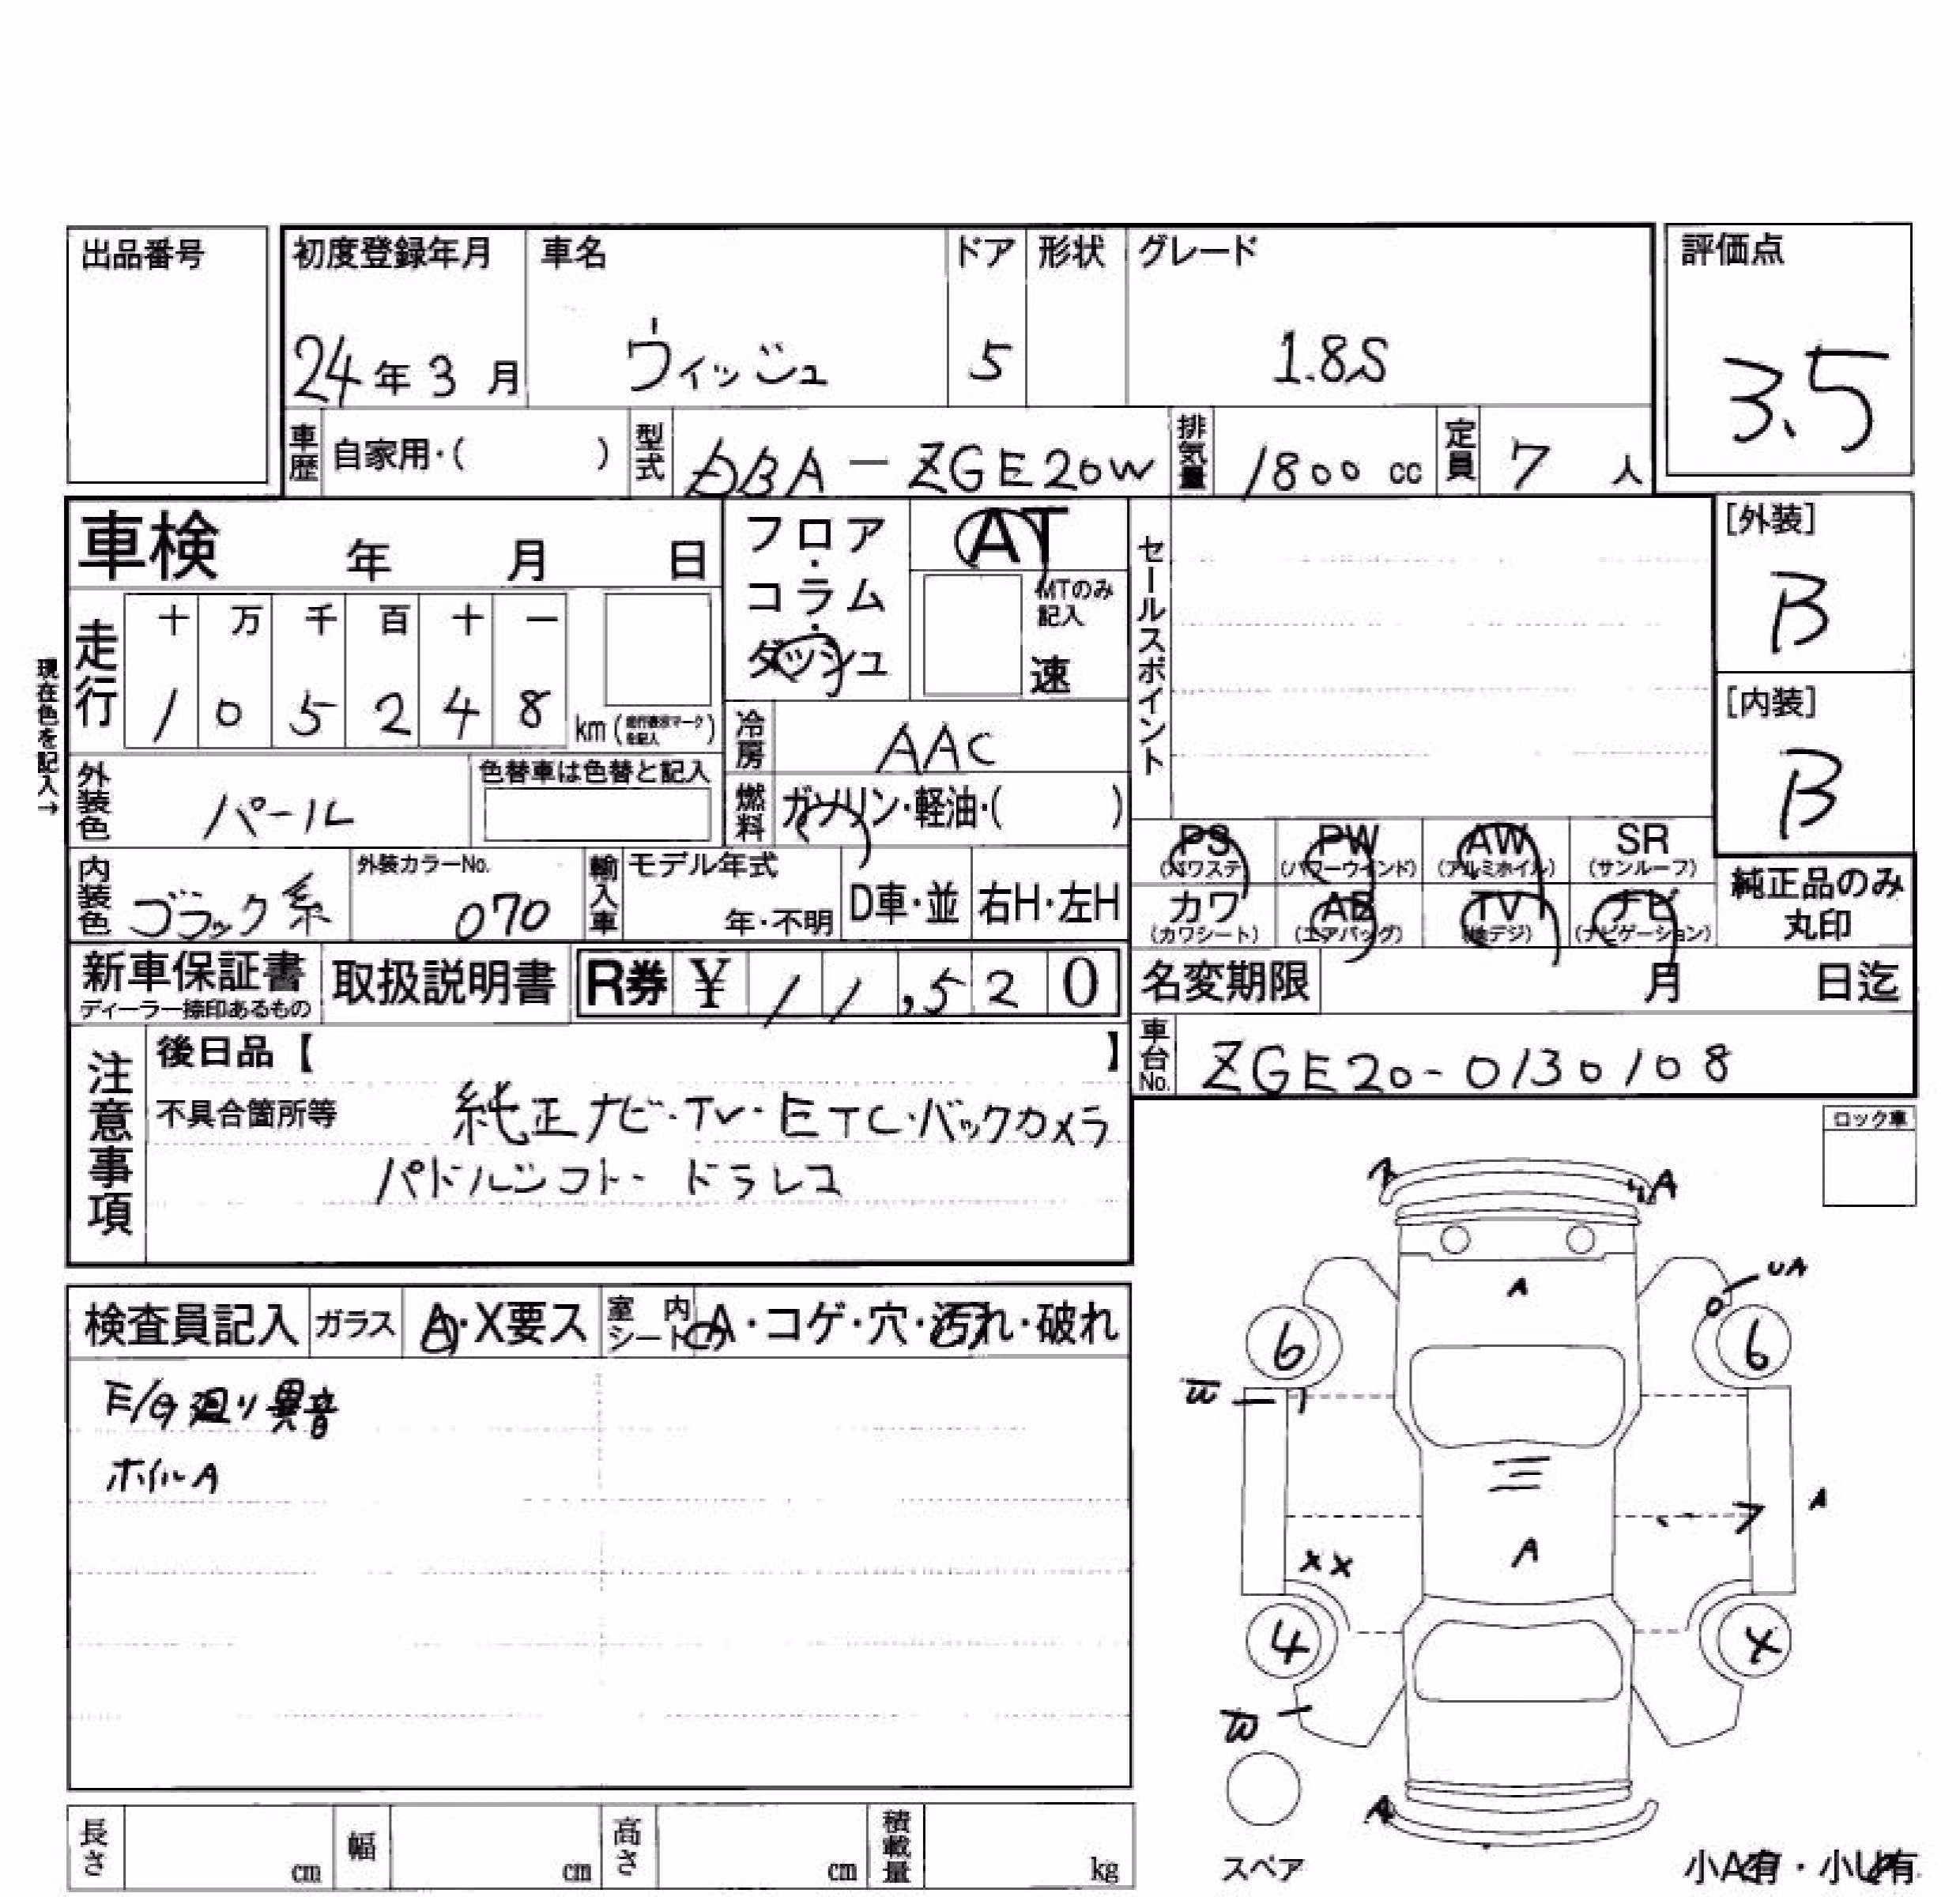 出品番号
初度登録年月 車名 ドア 形状 グレード 評価点
24年3月 ウィッシュ 5 1.8S 3.5
車歴 自家用・( ) 型式 DBA-ZGE20W 排気量 1800 cc 定員 7 人
車検 年 月 日
フロア・コラム・ダッシュ
AT
MTのみ記入
速
セールスポイント
[外装]
B
[内装]
B
現在色を記入→
走行 十 万 千 百 十 一
1 0 5 2 4 8 km (走行表示マークを記入)
冷房 AAC
外装色 パール 色替車は色替と記入
燃料 ガソリン・軽油・( )
PS (パワステ) PW (パワーウインド) AW (アルミホイル) SR (サンルーフ)
カワ (カワシート) AB (エアバッグ) TV (地デジ) ナビ (ナビゲーション)
純正品のみ丸印
内装色 ブラック系 外装カラーNo. 070 輸入車 モデル年式 年・不明 D車・並 右H・左H
新車保証書 ディーラー捺印あるもの 取扱説明書 R券 ¥ 11,520
名変期限 月 日迄
車台No. ZGE20-0130108
注意事項
後日品【 】
不具合箇所等 純正ナビ・TV・ETC・バックカメラ
パドルシフト・ドラレコ
ロック車
検査員記入 ガラス A・X要ス 室内シート A・コゲ・穴・汚れ・破れ
E/G廻り異音
ホイルA
A
A
UA
6
6
A
A
XX
4
A
スペア
小A有・小U有
長さ cm 幅 cm 高さ cm 積載量 kg